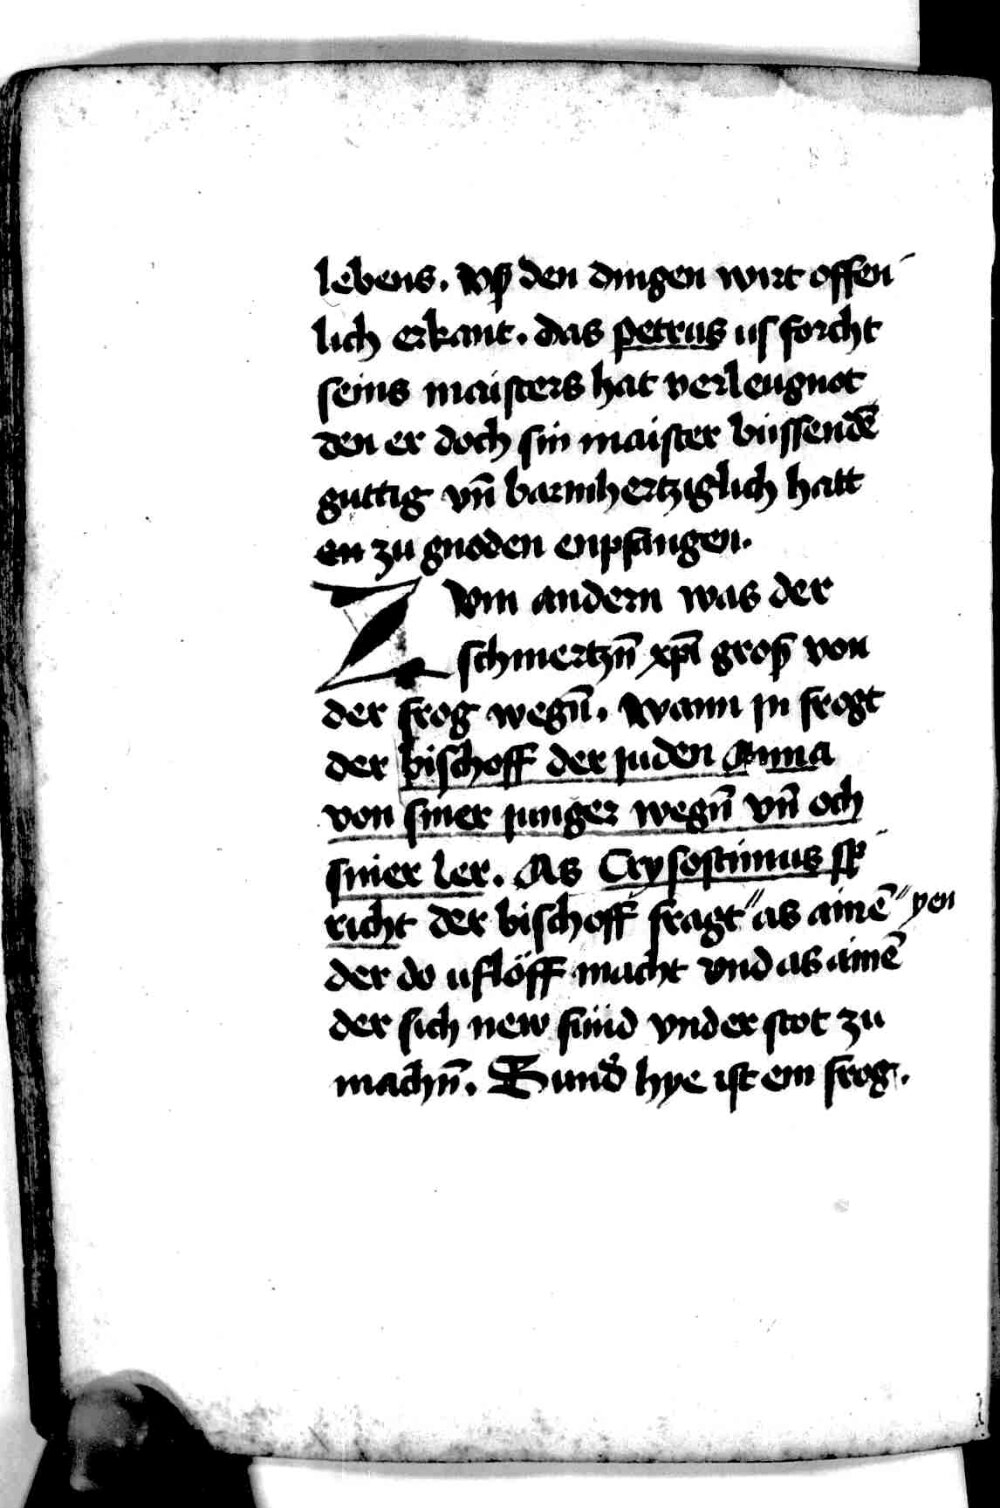 lebens. Vß den dingen wirt offen
lich erkant. das petrus us forcht
seins maisters hat verleugnot
den er doch sin maister büssendē
guttig vn̄ barmhertziglich hatt
en zu gnoden enpfangen.
Zvm andern was der
schmertzn̄ xp̄i groß von
der frog wegn̄. Wann jn frogt
der bischoff der juden Anna
von siner junger wegn̄ vn̄ och
siner ler. As Crysostimus sp
richt der bischoff fragt as ainē yen
der do uflöff macht vnd as ainē
der sich new sünd vnder stot zu
machn̄. hye ist ein frog.